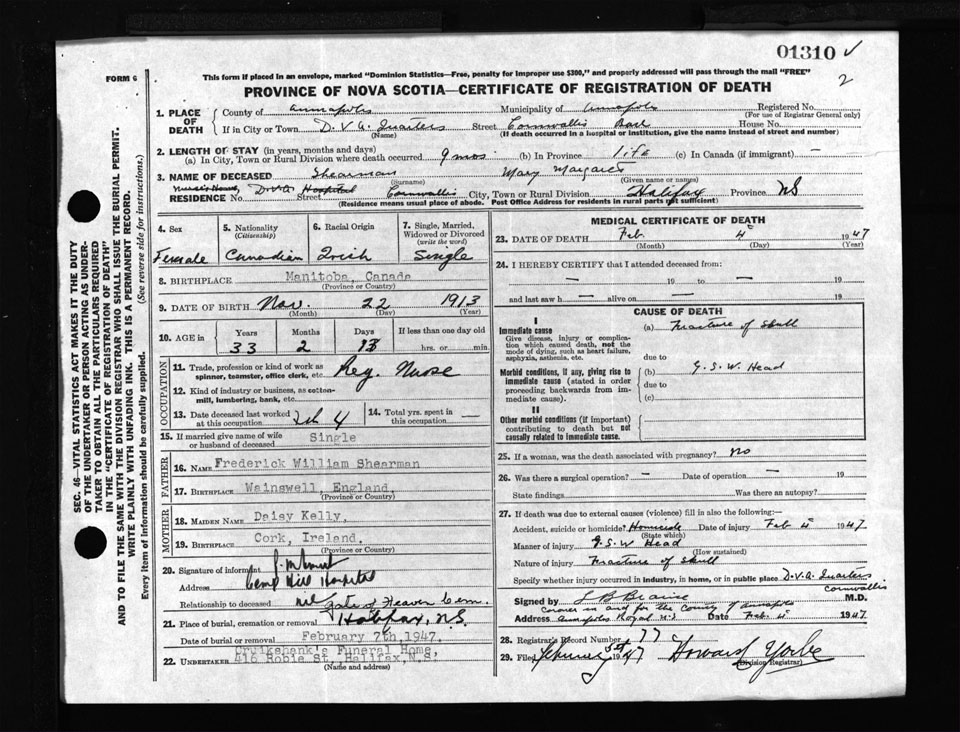 01310 ✓
2
FORM 6
This form if placed in an envelope, marked "Dominion Statistics—Free, penalty for improper use $300," and properly addressed will pass through the mail "FREE"
PROVINCE OF NOVA SCOTIA—CERTIFICATE OF REGISTRATION OF DEATH
SEC. 46—VITAL STATISTICS ACT MAKES IT THE DUTY
OF THE UNDERTAKER OR PERSON ACTING AS UNDER-
TAKER TO OBTAIN ALL THE PARTICULARS REQUIRED
IN THE "CERTIFICATE OF REGISTRATION OF DEATH"
AND TO FILE THE SAME WITH THE DIVISION REGISTRAR WHO SHALL ISSUE THE BURIAL PERMIT.
WRITE PLAINLY WITH UNFADING INK. THIS IS A PERMANENT RECORD.
Every item of information should be carefully supplied. (See reverse side for instructions.)
1. PLACE OF DEATH County of Annapolis Municipality of Annapolis Registered No.
(For use of Registrar General only)
If in City or Town D.V.A. Quarters Street Cornwallis House No.
(Name) (If death occurred in a hospital or institution, give the name instead of street and number)
2. LENGTH OF STAY (in years, months and days)
(a) In City, Town or Rural Division where death occurred 9 mos (b) In Province life (c) In Canada (if immigrant) —
3. NAME OF DECEASED Shearman Mary Margaret
(Surname) (Given name or names)
RESIDENCE No. D.V.A. Hospital Street Cornwallis City, Town or Rural Division Halifax Province NS
(Residence means usual place of abode. Post Office Address for residents in rural parts not sufficient)
4. Sex
Female
5. Nationality
(Citizenship)
Canadian
6. Racial Origin
Irish
7. Single, Married,
Widowed or Divorced
(write the word)
Single
8. BIRTHPLACE Manitoba, Canada
(Province or Country)
9. DATE OF BIRTH Nov. 22 1913
(Month) (Day) (Year)
10. AGE in Years Months Days If less than one day old
33 2 13 hrs. or min.
OCCUPATION
11. Trade, profession or kind of work as
spinner, teamster, office clerk, etc. Reg. Nurse
12. Kind of industry or business, as cotton-
mill, lumbering, bank, etc.
13. Date deceased last worked
at this occupation Feb 4
14. Total yrs. spent in
this occupation —
15. If married give name of wife
or husband of deceased Single
FATHER
16. NAME Frederick William Shearman
17. BIRTHPLACE Wainswell, England,
(Province or Country)
MOTHER
18. MAIDEN NAME Daisy Kelly,
19. BIRTHPLACE Cork, Ireland.
(Province or Country)
20. Signature of informant
Address Camp Hill Hospital
Relationship to deceased nil
21. Place of burial, cremation or removal Gate of Heaven Cem.
Halifax, N.S.
Date of burial or removal February 7th, 1947.
22. UNDERTAKER Cruikshank's Funeral Home,
416 Robie St., Halifax, N.S.
(Name and address)
MEDICAL CERTIFICATE OF DEATH
23. DATE OF DEATH Feb. 4 1947
(Month) (Day) (Year)
24. I HEREBY CERTIFY that I attended deceased from:
— 19 to — 19
and last saw h — alive on — 19
CAUSE OF DEATH
I
Immediate cause
Give disease, injury or complica-
tion which caused death, not the
mode of dying, such as heart failure,
asphyxia, asthenia, etc.
(a) Fracture of Skull
due to
Morbid conditions, if any, giving rise to
immediate cause (stated in order
proceeding backwards from im-
mediate cause).
(b) G.S.W. Head
due to
(c)
II
Other morbid conditions (if important)
contributing to death but not
causally related to immediate cause.
25. If a woman, was the death associated with pregnancy? No
26. Was there a surgical operation? — Date of operation — 19
State findings Was there an autopsy?
27. If death was due to external causes (violence) fill in also the following:—
Accident, suicide or homicide? Homicide Date of injury Feb 4 1947
(State which)
Manner of injury G.S.W Head
(How sustained)
Nature of injury Fracture of Skull
Specify whether injury occurred in industry, in home, or in public place D.V.A. Quarters
Cornwallis
Signed by M.D.
Coroner in and for the County of Annapolis
Address Annapolis Royal N.S Date Feb. 4 1947
28. Registrar's Record Number 77
29. Filed February 5th 1947 Howard Yorke
(Division Registrar)